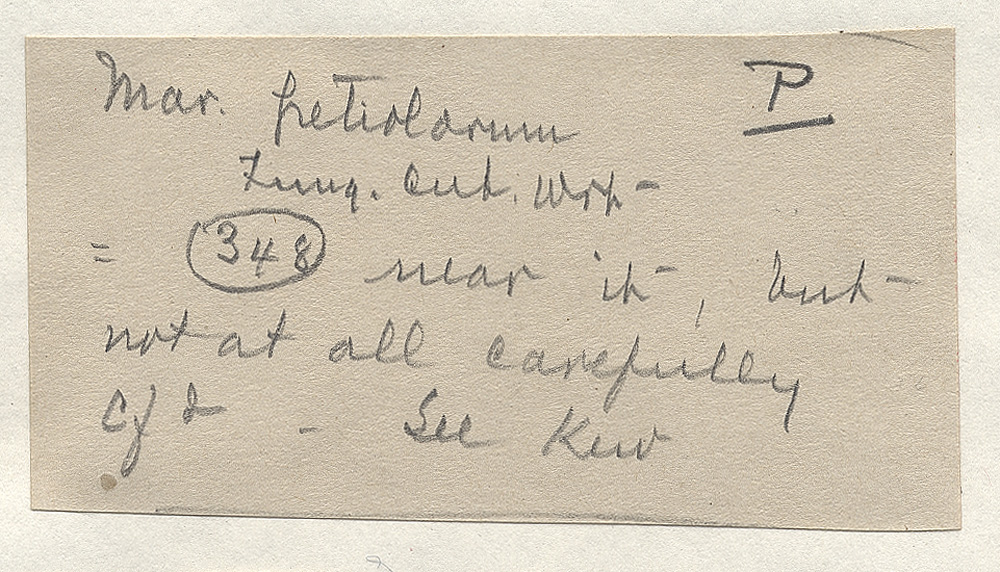 Mar. petiolorum P
Fung. Cub. Wrt-
= 348 near it, but-
not at all carefully
Cfd - See Kew